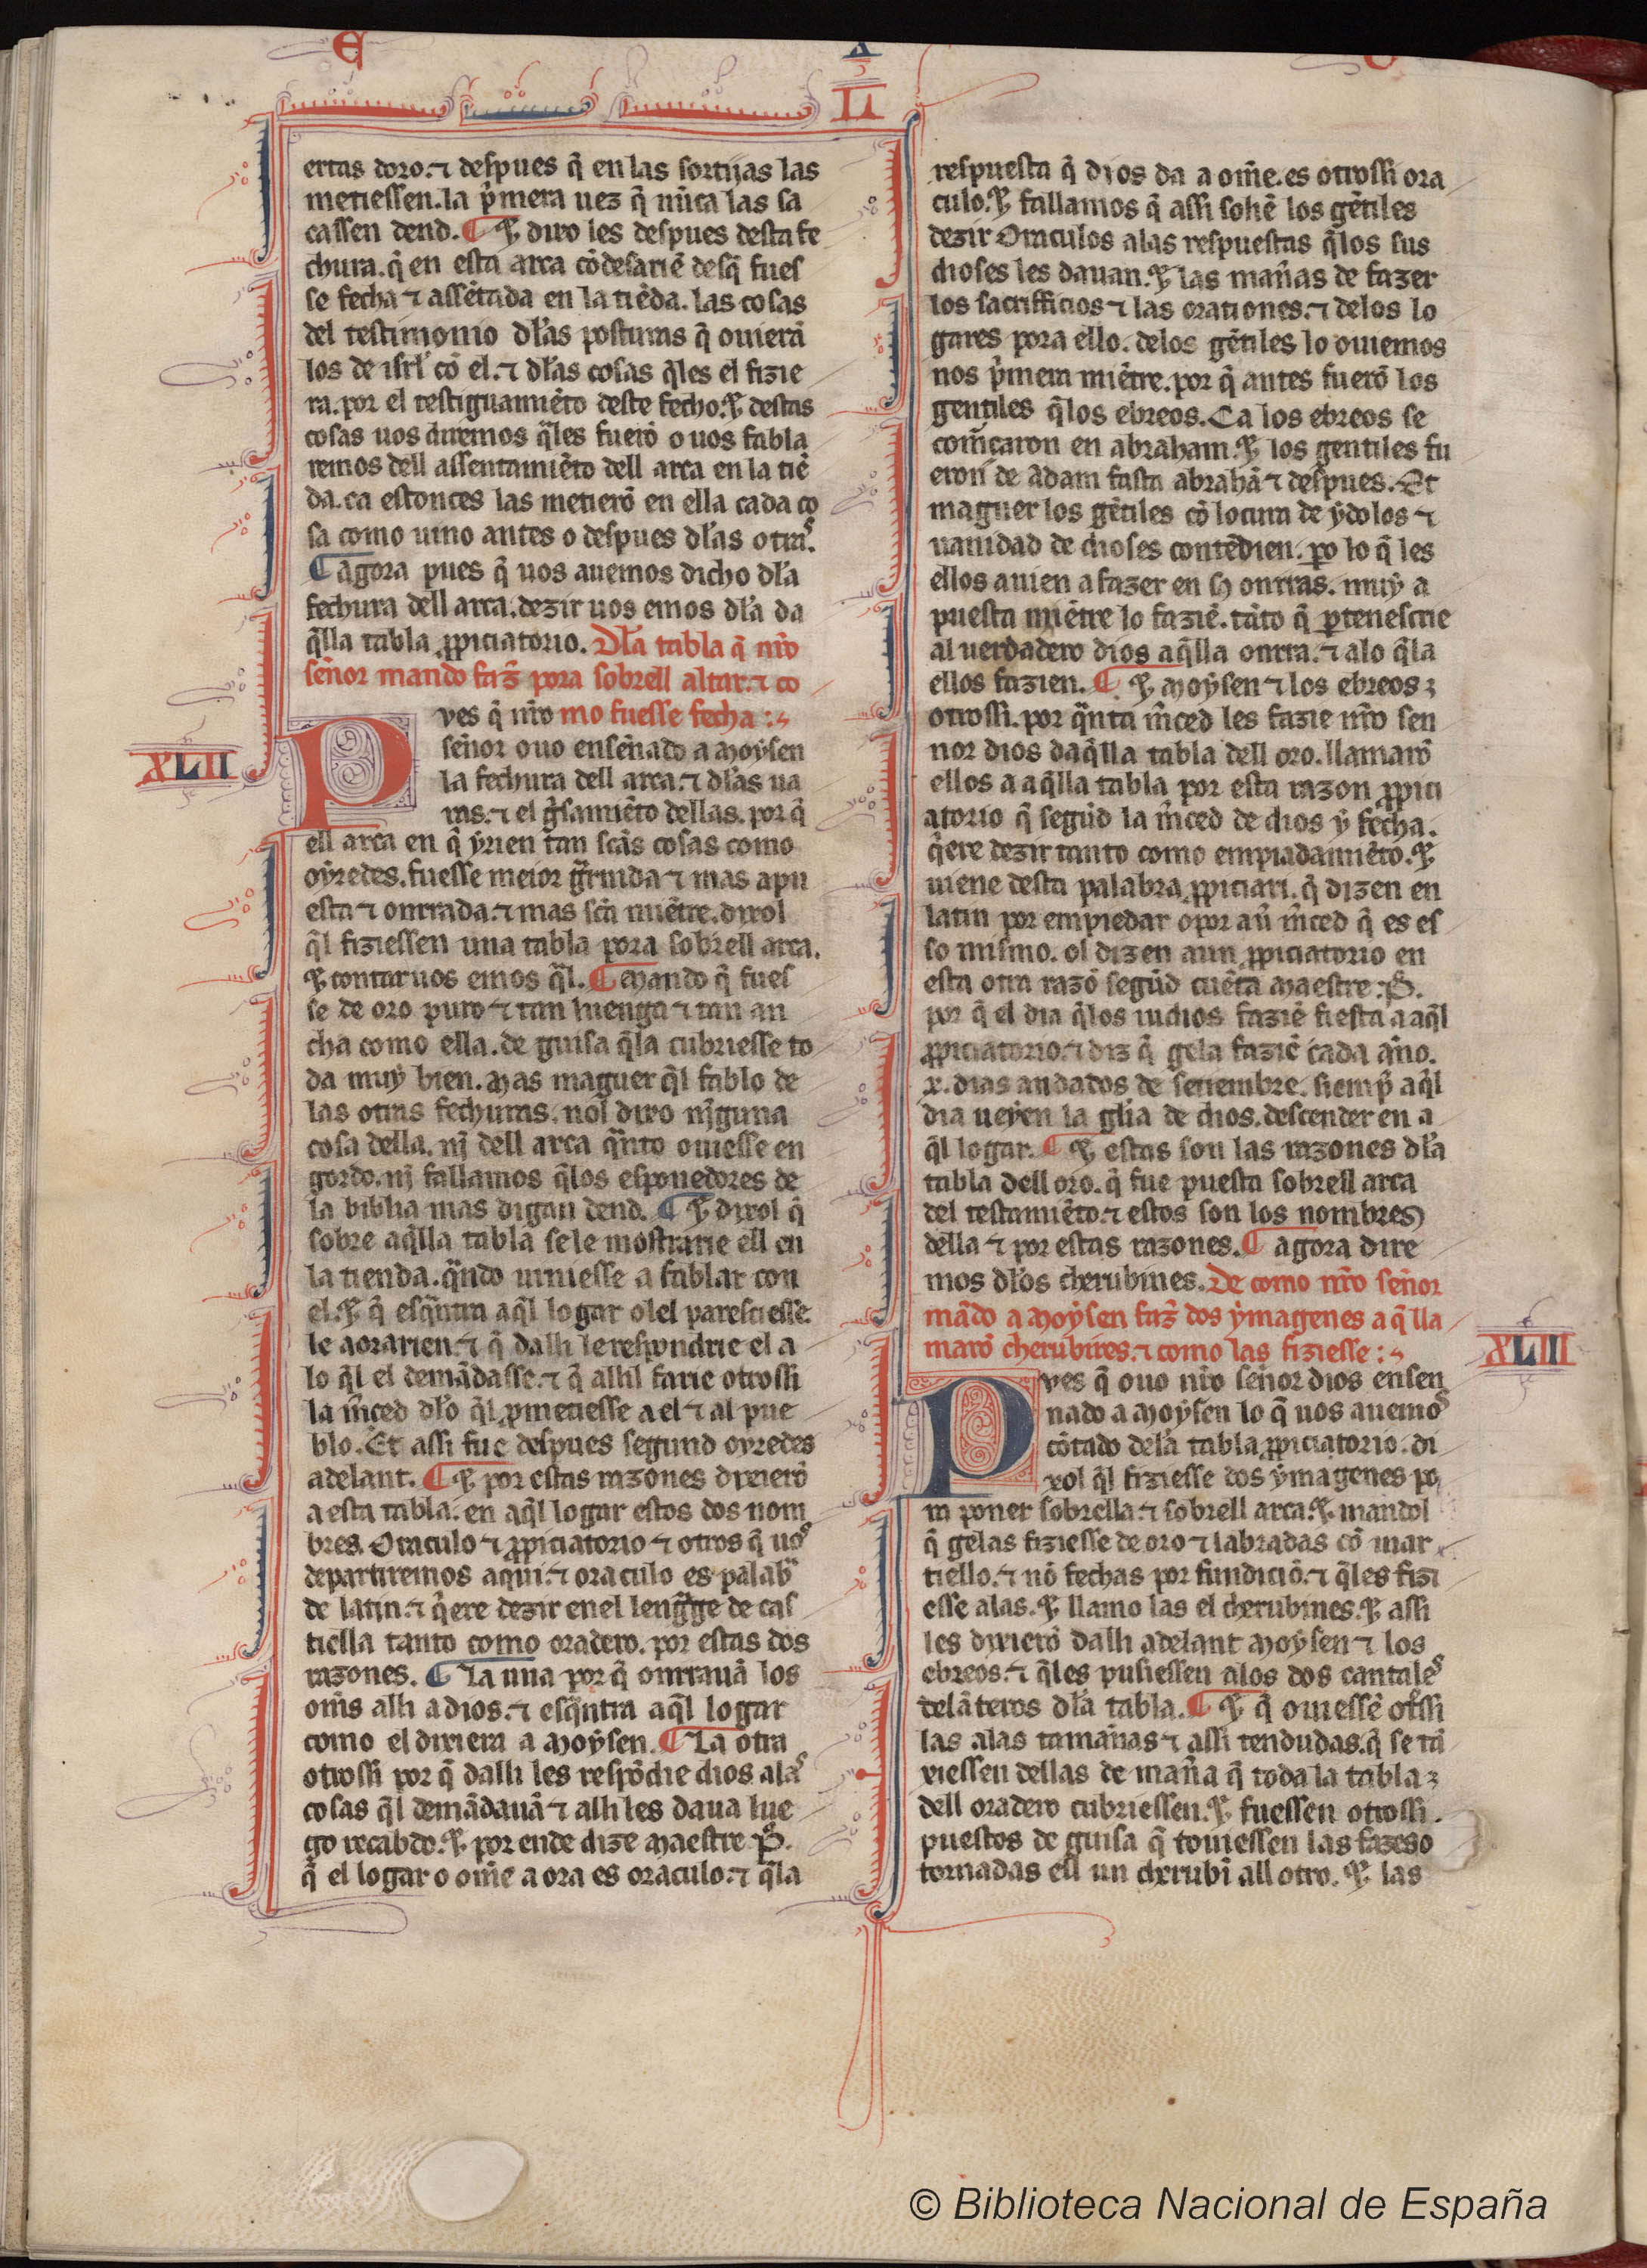 E X O
II
ertas doro. ⁊ despues q̃ en las sortijas las
metiessen. la p̃mera uez q̃ nũca las sa
cassen dend. ¶ ⁊ dixo les despues desta fe
chura. q̃ en esta arca cõdesariẽ desq̃ fues
se fecha ⁊ assẽtada en la tiẽda. las cosas
del testimonio dl̃as posturas q̃ ouierã
los de isrl̃ cõ el. ⁊ dl̃as cosas q̃les el fizie
ra. por el testiguamiẽto deste fecho. ⁊ destas
cosas uos diremos q̃les fuerõ o uos fabla
remos dell assentamiẽto dell arca en la tiẽ
da. ca estonces las metierõ en ella cada co
sa como uino antes o despues dl̃as otras.
¶ agora pues q̃ uos auemos dicho dl̃a
fechura dell arca. dezir uos emos dl̃a da
q̃lla tabla ꝓpiciatorio. Dl̃a tabla q̃ nr̃o
señor mando faz̃ pora sobrell altar. ⁊ co
mo fuesse fecha :
XLII
Pues q̃ nr̃o
señor ouo enseñado a moẏsen
la fechura dell arca. ⁊ dl̃as ua
ras. ⁊ el g̃samiẽto dellas. por q̃
ell arca en q̃ ẏrien tan scãs cosas como
oẏredes. fuesse meior g̃rnida ⁊ mas apu
esta ⁊ onrrada. ⁊ mas scã miẽtre. dixol
q̃l fiziessen una tabla pora sobrell arca.
⁊ contar uos emos q̃l. ¶ Mando q̃ fues
se de oro puro ⁊ tan luenga ⁊ tan an
cha como ella. de guisa q̃la cubriesse to
da muẏ bien. Mas maguer q̃l fablo de
las otras fechuras. nol dixo nĩguna
cosa della. nĩ dell arca q̃nto ouiesse en
gordo. nĩ fallamos q̃los esponedores de
la biblia mas digan dend. ¶ ⁊ dixol q̃
sobre aq̃lla tabla sele mostrarie ell en
la tienda. q̃ndo uiniesse a fablar con
el. ⁊ q̃ esq̃ntra aq̃l logar olel paresciesse.
le aorarien. ⁊ q̃ dalli le respondrie el a
lo q̃l el demãdasse. ⁊ q̃ allil farie otrossi
la m̃ced dl̃o q̃l ꝓmetiesse a el ⁊ al pue
blo. Et assi fue despues segund oẏredes
adelant. ¶ ⁊ por estas razones dixierõ
a esta tabla. en aq̃l logar estos dos nom
bres. Oraculo ⁊ ꝓpiciatorio ⁊ otros q̃ uos
departiremos aqui. ⁊ oraculo es palabra
de latin. ⁊ q̃ere dezir enel leng̃ge de cas
tiella tanto como oradero. por estas dos
razones. ¶ La una por q̃ onrrauã los
om̃s alli a dios. ⁊ esq̃ntra aq̃l logar
como el dixiera a moẏsen. ¶ La otra
otrossi por q̃ dalli les respõdie dios alas
cosas q̃l demãdauã ⁊ alli les daua lue
go recabdo. ⁊ por ende dize maestre P.
q̃ el logar o om̃e aora es oraculo. ⁊ q̃la
respuesta q̃ dios da a om̃e. es otrossi ora
culo. ⁊ fallamos q̃ assi soliẽ los gẽtiles
dezir Oraculos alas respuestas q̃los sus
dioses les dauan. ⁊ las mañas de fazer
los sacrifficios ⁊ las orationes. ⁊ delos lo
gares pora ello. delos gẽtiles lo ouiemos
nos p̃mera miẽtre. por q̃ antes fuerõ los
gentiles q̃los ebreos. Ca los ebreos se
com̃çaron en abraham. ⁊ los gentiles fu
eron de adam fasta abrahã ⁊ despues. Et
maguer los gẽtiles cõ locura de ẏdolos ⁊
uanidad de dioses contẽdien. ꝑo lo q̃ les
ellos auien a fazer en sȷ onrras. muẏ a
puesta miẽtre lo faziẽ. tãto q̃ ꝑtenescrie
al uerdadero dios aq̃lla onrra. ⁊ alo q̃la
ellos fazien. ¶ ⁊ moẏsen ⁊ los ebreos
otrossi. por q̃nta m̃ced les fazie nr̃o sen
nor dios daq̃lla tabla dell oro. llamarõ
ellos a aq̃lla tabla por esta razon ꝓpici
atorio q̃ segũd la m̃ced de dios ẏ fecha.
q̃ere dezir tanto como empiadamiẽto. ⁊
uiene desta palabra ꝓpiciari. q̃ dizen en
latin por empiedar o por aũ m̃ced q̃ es es
so mismo. ol dizen aun ꝓpiciatorio en
esta otra razõ segũd cuẽta maestre P.
por q̃ el dia q̃los iudios faziẽ fiesta a aq̃l
ꝓpiciatorio. ⁊ diz q̃ gela faziẽ cada año.
x. dias andados de setiembre. siemp̃ aq̃l
dia ueẏen la glĩa de dios. descender en a
q̃l logar. ¶ ⁊ estas son las razones dl̃a
tabla dell oro. q̃ fue puesta sobrell arca
del testamiẽto. ⁊ estos son los nombres
della ⁊ por estas razones. ¶ agora dire
mos dl̃os cherubines. De como nr̃o señor
mãdo a moẏsen faz̃ dos ẏmagenes a q̃ lla
marõ cherubines. ⁊ como las fiziesse :
XLIII
Pues q̃ ouo nr̃o señor dios ensen
nado a moẏsen lo q̃ uos auemos
cõtado dela tabla ꝓpiciatorio. di
xol q̃l fiziesse dos ẏmagenes po
ra poner sobrella ⁊ sobrell arca. ⁊ mandol
q̃ gelas fiziesse de oro ⁊ labradas cõ mar
tiello. ⁊ nõ fechas por fundiciõ. ⁊ q̃les fizi
esse alas. ⁊ llamo las el cherubines. ⁊ assi
les dixierõ dalli adelant moẏsen ⁊ los
ebreos. ⁊ q̃les pusiessen alos dos cantales
delãteros dl̃a tabla. ¶ ⁊ q̃ ouiessẽ ot̃ssi
las alas tamañas ⁊ assi tendudas. q̃ se tã
xiessen dellas de mañа q̃ toda la tabla
dell oradero cubriessen. ⁊ fuessen otrossi
puestos de guisa q̃ touiessen las fazes
tornadas ell un cherubĩ all otro. ⁊ las
© Biblioteca Nacional de España